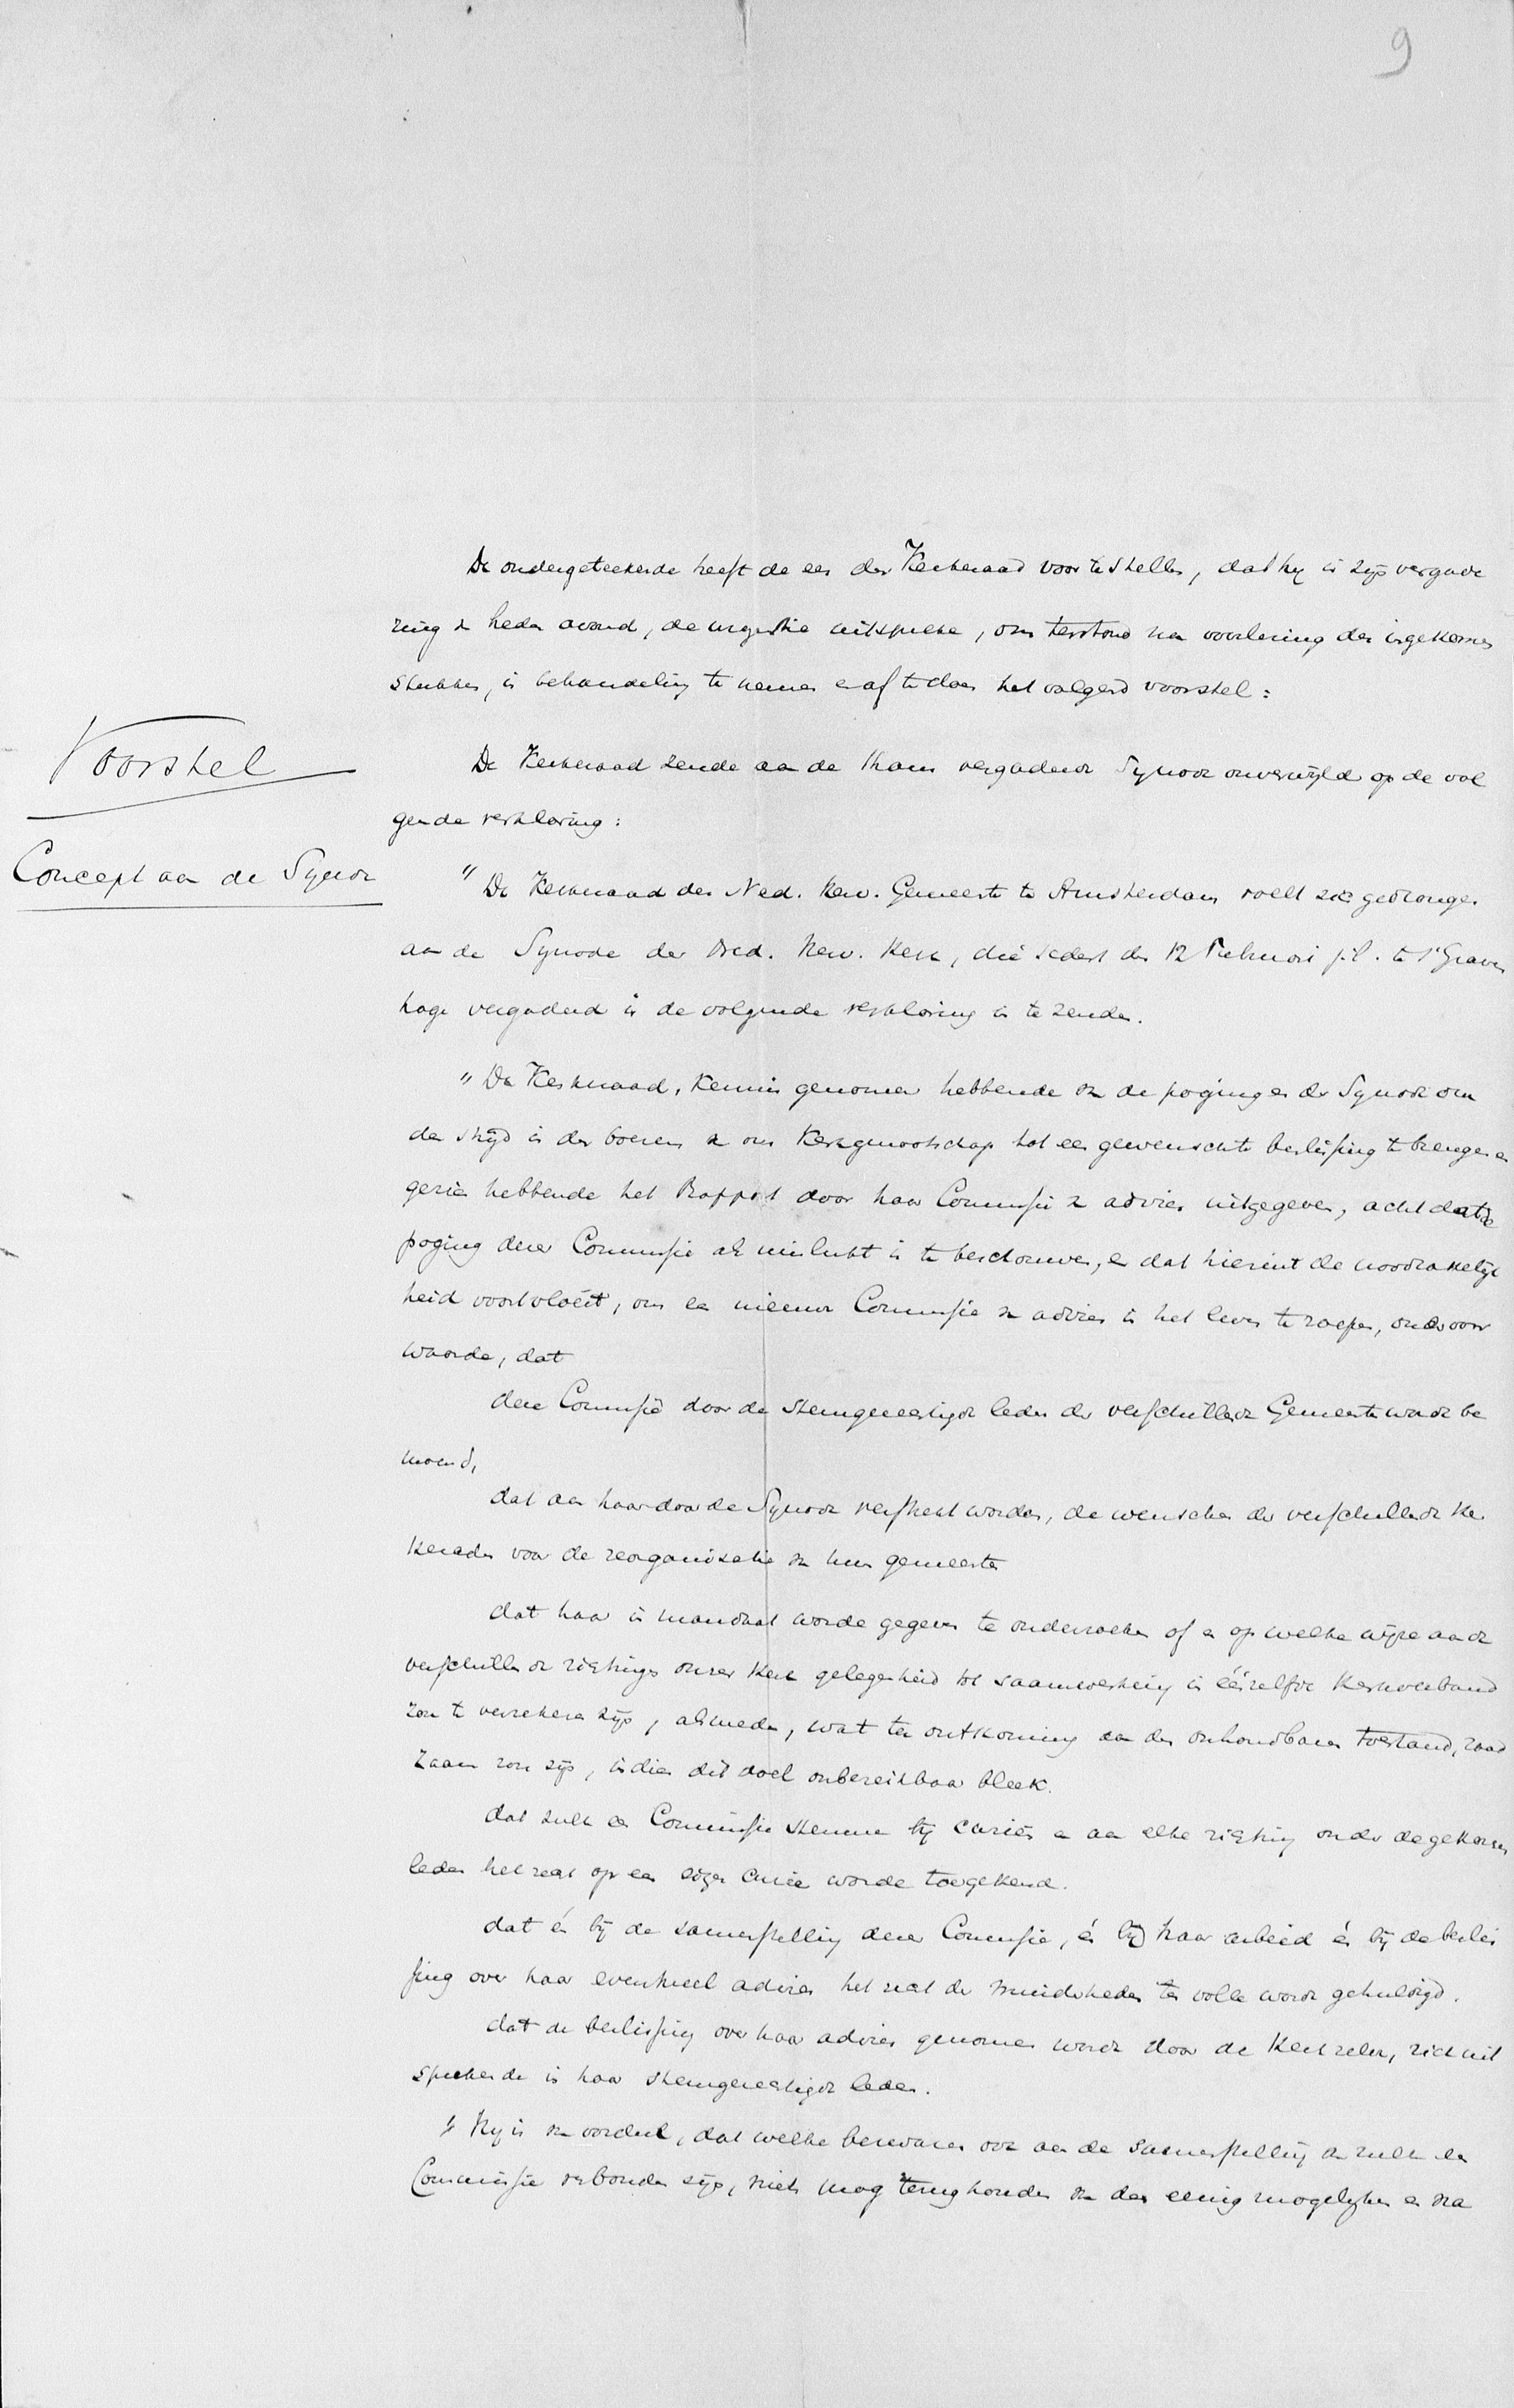 9
De ondergeteekende heeft de eer den Kerkeraad voor te stellen, dat hij in zijn vergade
ring van heden avond, de urgentie uitspreke, om terstond na voorlezing der ingekomen
stukken, in behandeling te nemen en af te doen het volgend voorstel:
Voorstel
De Kerkeraad zende aan de thans vergaderde Synode onverwijld op de vol
gende verklaring:
Concept aan de Synode
"De Kerkeraad der Ned. Herv. Gemeente te Amsterdam voelt zich gedrongen
aan de Synode der Ned. Herv. Kerk, die sedert den 12 Februari j.l. te 's Graven
hage vergaderd is de volgende verklaring in te zenden.
"De Kerkeraad, kennis genomen hebbende van de pogingen der Synode om
den strijd in den boezem van ons Kerkgenootschap tot een gewenschte beslissing te brengen en
gezien hebbende het Rapport door haar Commissie van advies uitgegeven, acht dat de
poging dezer Commissie als mislukt is te beschouwen, en dat hieruit de noodzakelijk
heid voortvloeit, om een nieuwe Commissie van advies in het leven te roepen, onder voor
waarde, dat
deze Commissie door de stemgerechtigde leden der verschillende Gemeenten worde be
noemd,
dat aan haar door de Synode verstrekt worden, de wenschen der verschillende Ker
keraden voor de reorganisatie van hun gemeenten
dat haar in mandaat worde gegeven te onderzoeken of en op welke wijze aan de
verschillende richtingen onzer Kerk gelegenheid tot saamwerking in éénzelfde Kerkverband
zou te verzekeren zijn, alsmede, wat ter ontkoming aan den onhoudbaren toestand, raad
zaam zou zijn, indien dit doel onbereikbaar bleek.
dat zulk een Commissie stemme bij curiën en aan elke richting onder de gekozen
leden het recht op een eigen curie worde toegekend.
dat én bij de samenstelling dezer Commissie, én bij haar arbeid én bij de beslis
sing over haar eventueel advies het recht der minderheden ten volle worde gehuldigd.
dat de beslissing over haar advies genomen worde door de Kerk zelve, zich uit
sprekende in haar stemgerechtigde leden.
"Hij is van oordeel, dat welke bezwaren ook aan de samenstelling van zulk een
Commissie verbonden zijn, niets mag terughouden van den eenig mogelijken en na